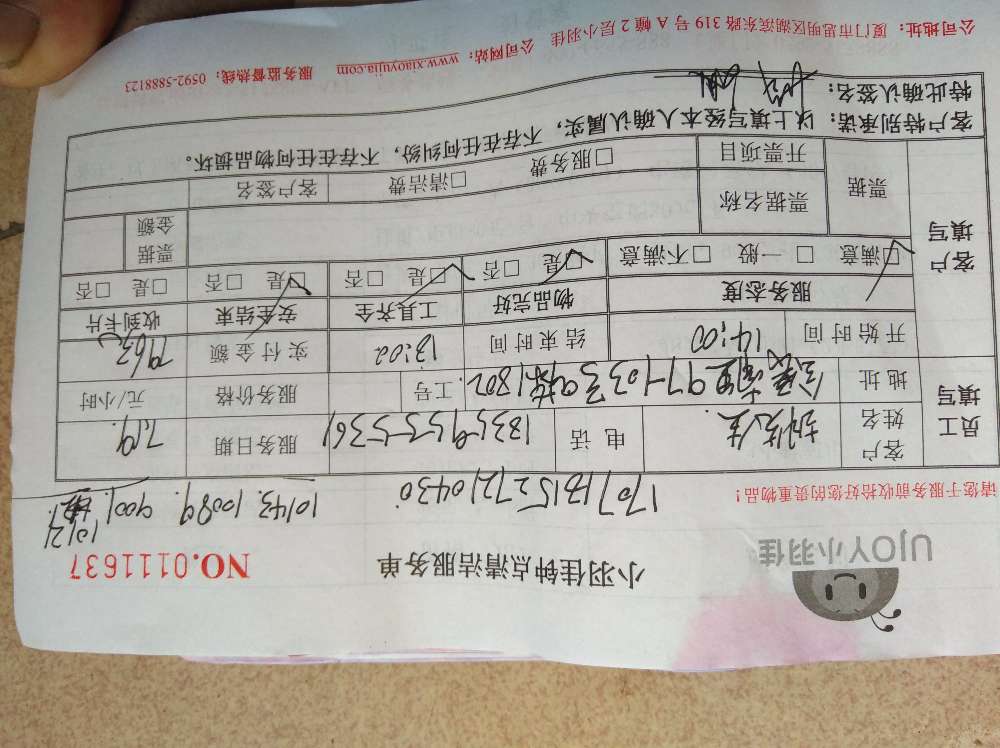 UJOY小羽佳
小羽佳钟点清洁服务单 NO.0111637
请您于服务前收拾好您的贵重物品! 1707131527210430 10143. 10089. 9001. 10121
员工填写 客户姓名 电话 服务日期 7.19.
地址 1802 工号 服务价格 元/小时
开始时间 14:00 结束时间 18:02 实付金额
客户填写 服务态度 物品完好 工具齐全 安全结束 收到卡片
□满意 □一般 □不满意 □是 □否 □是 □否 □是 □否 □是 □否
票据 票据名称 票据金额
开票项目 □服务费 □清洁费 客户签名
客户特别承诺: 以上填写经本人确认属实,不存在任何纠纷,不存在任何物品损坏。
特此确认签名:
公司地址: 厦门市思明区湖滨东路 319 号 A 幢 2 层小羽佳 公司网站: www.xiaoyujia.com 服务监督热线: 0592-5888123